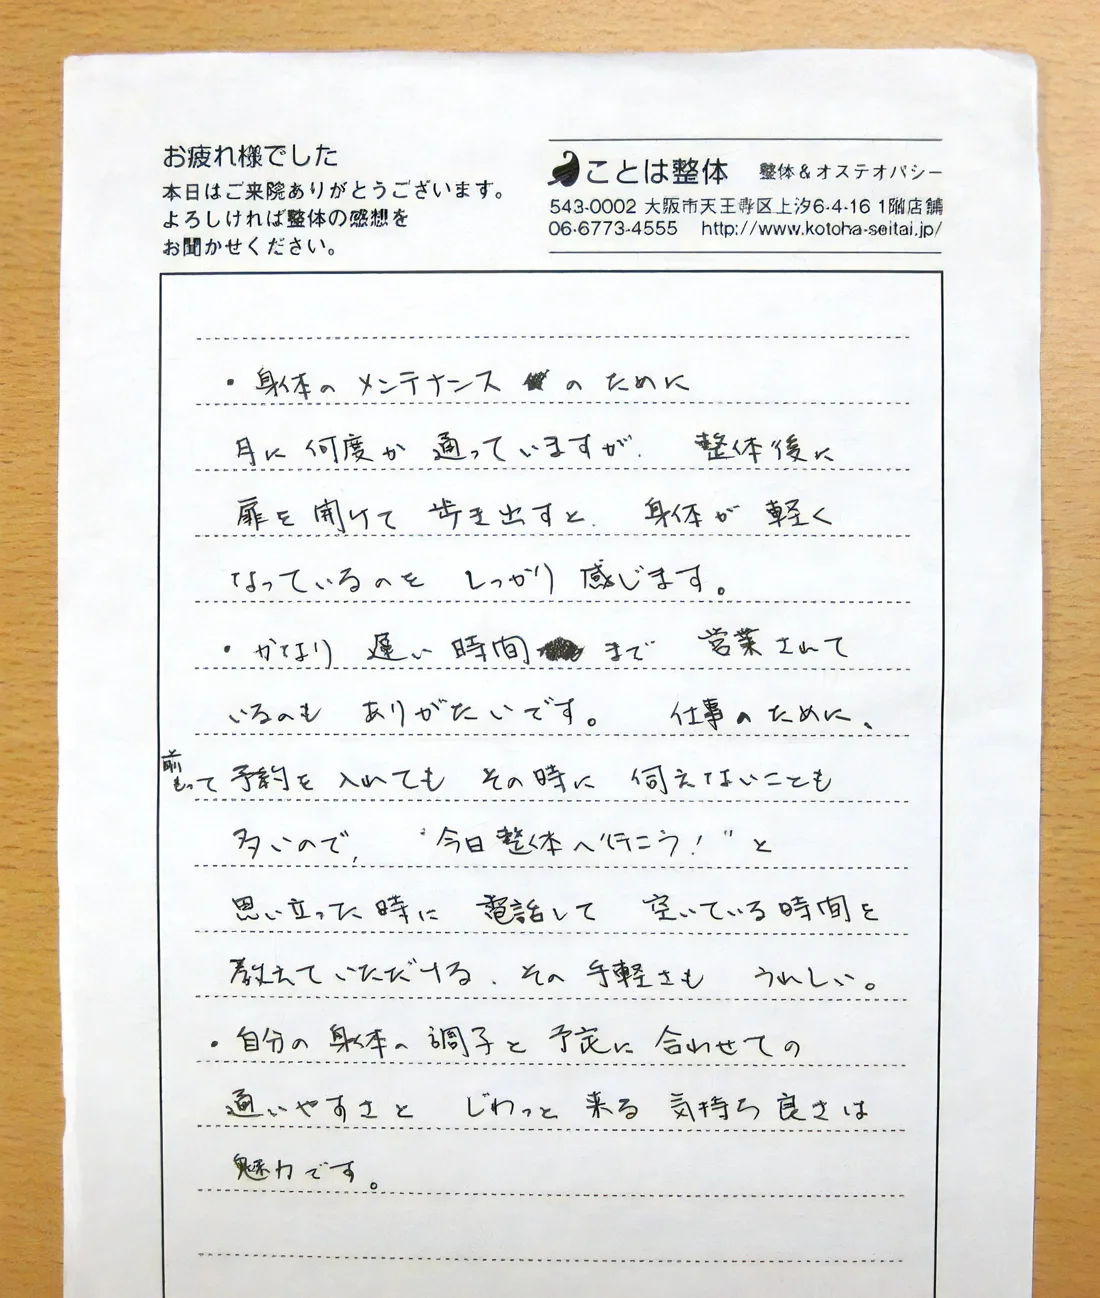 お疲れ様でした
本日はご来院ありがとうございます。
よろしければ整体の感想を
お聞かせください。
ことは整体 整体&オステオパシー
543-0002 大阪市天王寺区上汐6-4-16 1階店舗
06-6773-4555 http://www.kotoha-seitai.jp/
・身体の メンテナンス の ために
月に 何度か 通っていますが、 整体後に
扉を 開けて 歩き出すと、 身体が 軽く
なっているのを しっかり 感じます。
・かなり 遅い 時間 まで 営業されて
いるのも ありがたいです。 仕事のために、
前もって 予約を 入れても その時に 伺えないことも
多いので、 “今日整体へ行こう!” と
思い立った時に 電話して 空いている時間を
教えていただける、その 手軽さも うれしい。
・自分の 身体の 調子と 予定に 合わせての
通いやすさと じわっと 来る 気持ち良さは
魅力です。